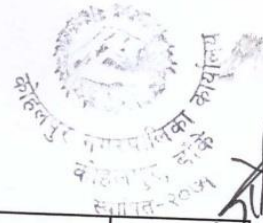 कोहलपुर नगरपालिका कार्यालय
कोहलपुर, बाँके
स्थापित-२०७१